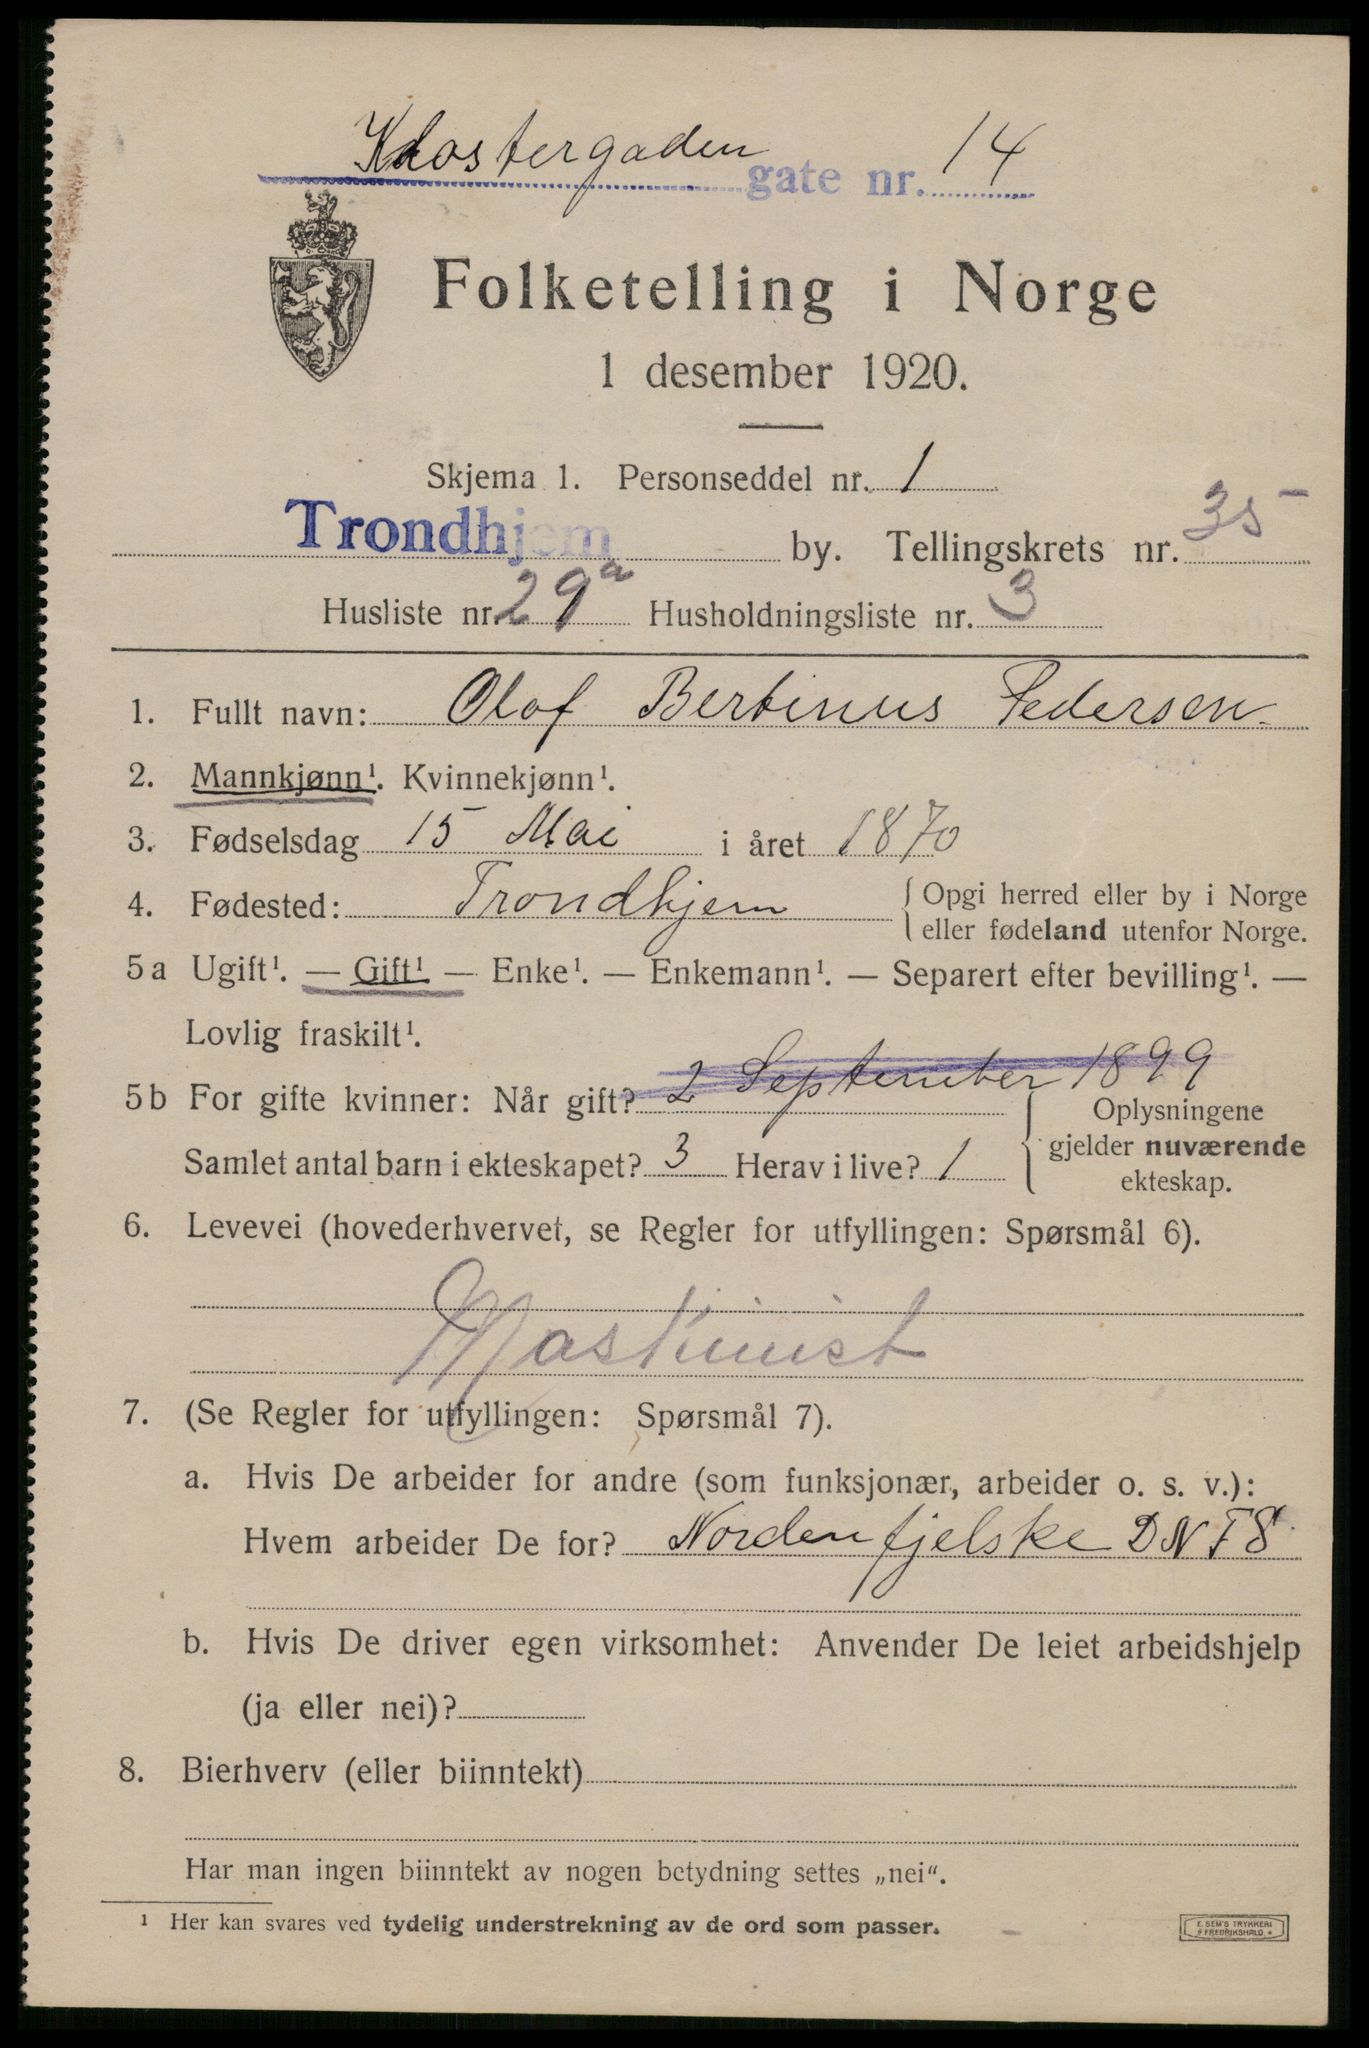 Klostergaden gate nr. 14
Folketelling i Norge
1 desember 1920.
Skjema 1. Personseddel nr. 1
Trondhjem by. Tellingskrets nr. 35
Husliste nr. 29a Husholdningsliste nr. 3
1. Fullt navn: Olof Bertinus Pedersen
2. Mannkjønn¹. Kvinnekjønn¹.
3. Fødselsdag 15 Mai i året 1870
4. Fødested: Trondhjem { Opgi herred eller by i Norge
eller fødeland utenfor Norge.
5a Ugift¹. — Gift¹ — Enke¹. — Enkemann¹. — Separert efter bevilling¹. —
Lovlig fraskilt¹.
5b For gifte kvinner: Når gift? 2 September 1899
Samlet antal barn i ekteskapet? 3 Herav i live? 1
Oplysningene
gjelder nuværende
ekteskap.
6. Levevei (hovederhvervet, se Regler for utfyllingen: Spørsmål 6).
Maskinist
7. (Se Regler for utfyllingen: Spørsmål 7).
a. Hvis De arbeider for andre (som funksjonær, arbeider o. s. v.):
Hvem arbeider De for? Nordenfjelske D N F S
b. Hvis De driver egen virksomhet: Anvender De leiet arbeidshjelp
(ja eller nei)?
8. Bierhverv (eller biinntekt)
Har man ingen biinntekt av nogen betydning settes „nei“.
¹ Her kan svares ved tydelig understrekning av de ord som passer.
E. SEM'S TRYKKERI
FREDRIKSHALD